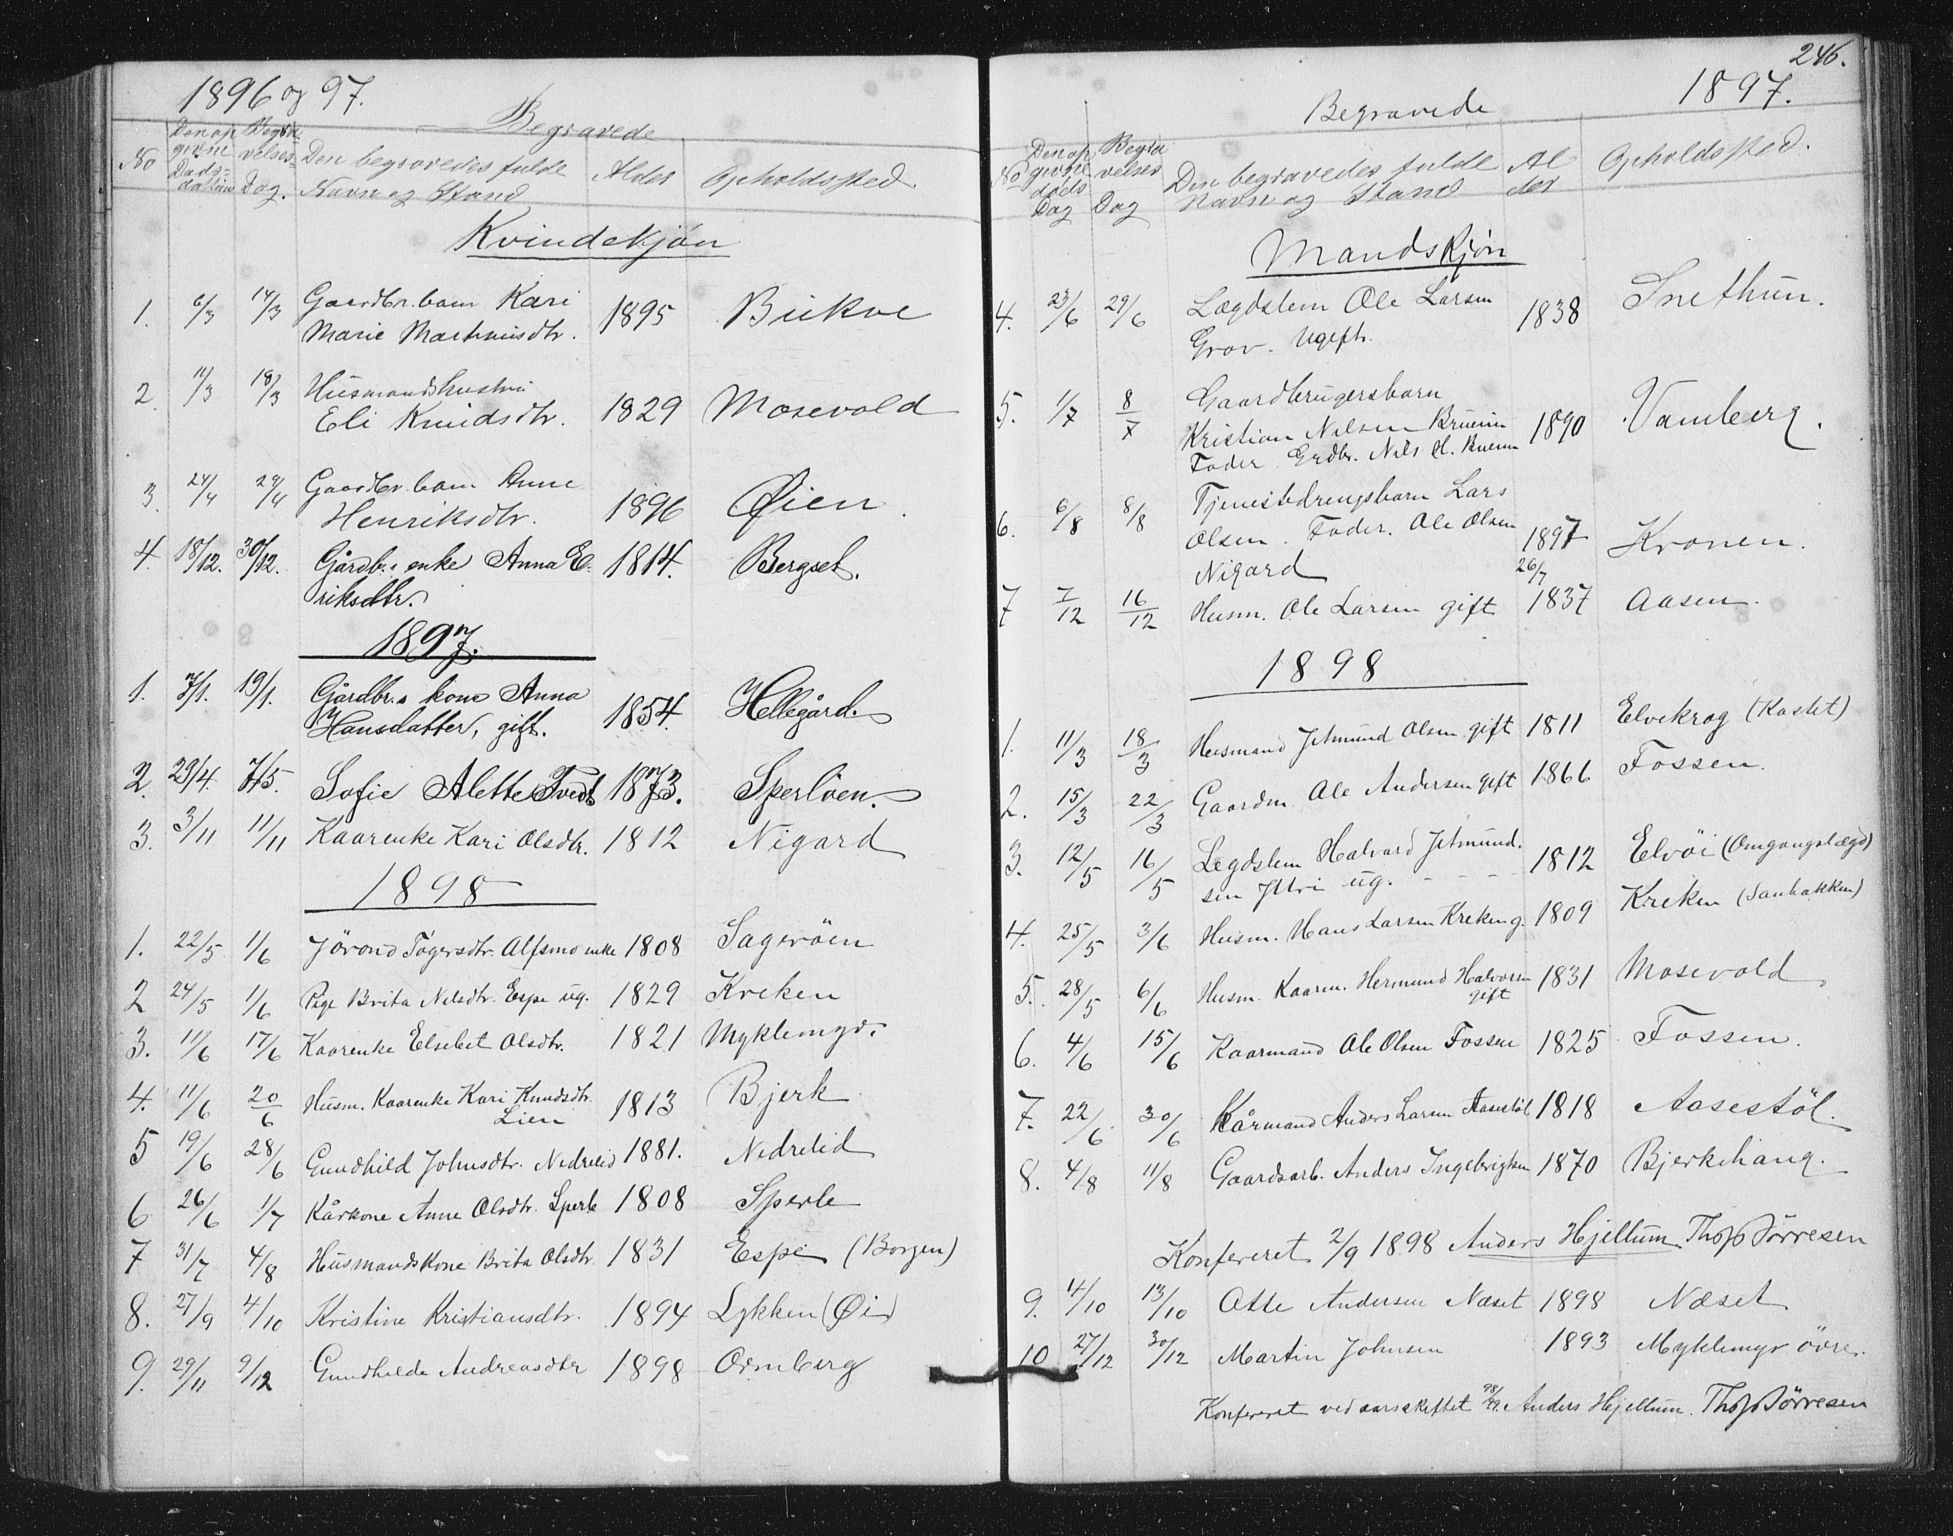 1896 og 97.
Begravede
No
Den op
givne
Døds-
datum
Begra
velses-
Dag.
Den begravedes fulde
Navn og Stand
Alder
Opholdssted.
Kvindekjøn
1. 6/3 14/3 Gaardbr. barn Kari
Marie Martinusdtr. 1895 Bukve
2. 11/3 18/3 Husmandshustru
Eli Knudsdtr. 1829 Mosevold
3. 24/4 29/4 Gaardbr. barn Anne
Henriksdtr. 1896 Øien.
4. 18/12. 30/12. Gårdb.s enke Anna E. 1814. Bergset.
riksdtr.
1897.
1. 7/1. 19/1. Gårdbr.s kone Anna
Hansdatter, gift. 1854. Hellegård.
2. 29/4. 7/5. Sofie Alette Tvedt 1873. Sperlöen.
3. 3/11 11/11 Kaarenke Kari Olsdtr. 1812 Nigard
1898
1. 22/5 1/6 Jörond Tögersdtr. Alfsmo enke 1808 Sageröen
2 24/5 1/6 Pige Brita Nilsdtr. Espe ug. 1829 Kreken
3. 11/6 17/6 Kaarenke Elsebet Olsdtr. 1821 Myklemyr.
4. 11/6 20/6 Husm. Kaarenke Kari Knudsdtr.
Lien 1813 Bjerk
5 19/6 28/6 Gundhild Johnsdtr. Nedrelid 1881. Nedrelid
6 26/6 1/7 Kårkone Anne Olsdtr. Sperle 1808 Sperle
7 31/7 4/8 Husmandskone Brita Olsdtr. 1831 Espe (Borgen)
8. 27/9 4/10 Kristine Kristiansdtr. 1894 Lykken (Øi)
9. 29/11 9/12 Gundhilde Andreasdtr 1898 Ormberg
246.
1897.
Begravede
No
Den op
givne
døds
Dag
Begra
velses
Dag
Den begravedes fulde
Navn og Stand
Al
der
Opholdssted.
Mandskjön
4. 23/6 29/6 Lægdslem Ole Larsen
Grov. Ugift. 1838 Snethun.
5. 1/7 8/7 Gaardbrugersbarn
Kristian Nilsen Bruenn
Fader Grdbr. Nils H. Bruenn 1890 Vamberg.
6. 6/8 8/8 Tjenestedrengsbarn Lars
Olsen. Fader. Ole Olsen
Nigard 1897
26/7 Kronen.
7 7/12 16/12 Husm. Ole Larsen gift 1837 Aasen.
1898
1. 11/3 18/3 Husmand Jetmund Olsen gift 1811 Elvekrog (Kastet)
2. 15/3 22/3 Gaardm. Ole Andersen gift 1866 Fossen.
3. 12/5 16/5 Legdslem Halvard Jetmund.
sen Yttri ug. - - - 1812 Elvöi (Omgangslægd)
4. 25/5 3/6 Husm. Hans Larsen Kreken g. 1809 Kreken (Sanbakken)
5. 28/5 6/6 Husm. Kaarm. Hermund Halvorsen
gift 1831 Mosevold
6. 4/6 15/6 Kaarmand Ole Olsen Fossen 1825 Fossen.
7. 22/6 30/6 Kårmand Anders Larsen Aasestöl 1818 Aasestöl.
8. 4/8 11/8 Gaardsarb. Anders Ingebrigtsen 1870 Bjerkehaug.
Konfereret 2/9 1898 Anders Hjellum Thof Dörresen
9. 4/10 13/10 Otte Andersen Næset 1898 Næset
10 27/12 30/12 Martin Johnsen 1893 Myklemyr övre.
Konfereret ved aarsskiftet 98/99. Anders Hjellum. Thof Dörresen